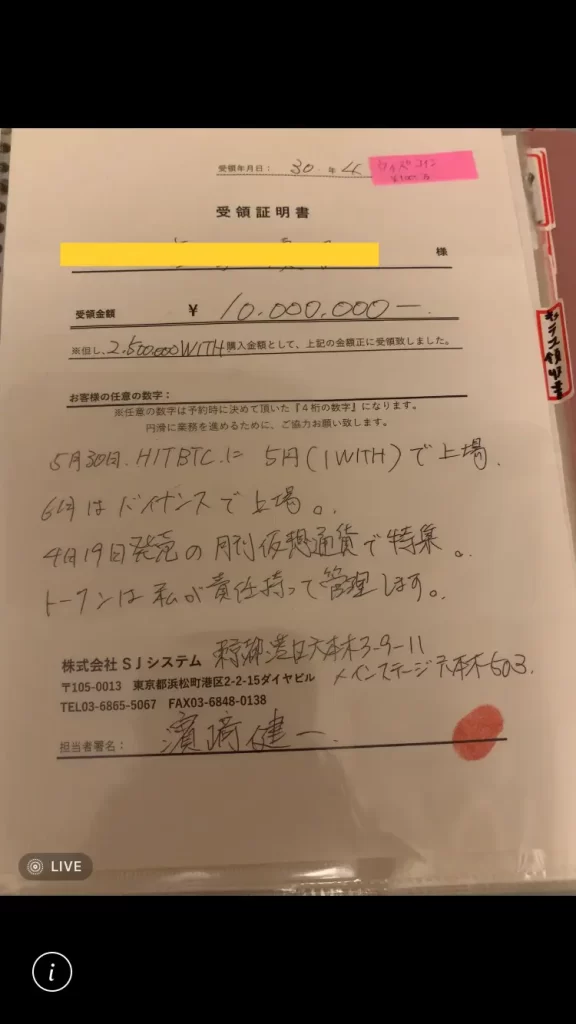 受領年月日： 30 年 4
受領証明書
様
受領金額 ¥ 10.000.000ー.
※但し、2,500,000WITH購入金額として、上記の金額正に受領致しました。
お客様の任意の数字：
※任意の数字は予約時に決めて頂いた『４桁の数字』になります。
円滑に業務を進めるために、ご協力お願い致します。
5月30日.HITBTC.に 5円(1WITH)で上場.
6月はバイナンスで上場。.
4月19日発売の月刊仮想通貨で特集。
トークンは私が責任持って管理します。
株式会社ＳＪシステム 東京都港区六本木3-9-11
メインステージ六本木503.
〒105-0013 東京都浜松町港区2-2-15ダイヤビル
TEL03-6865-5067 FAX03-6848-0138
担当者署名： 濱﨑健一.
LIVE